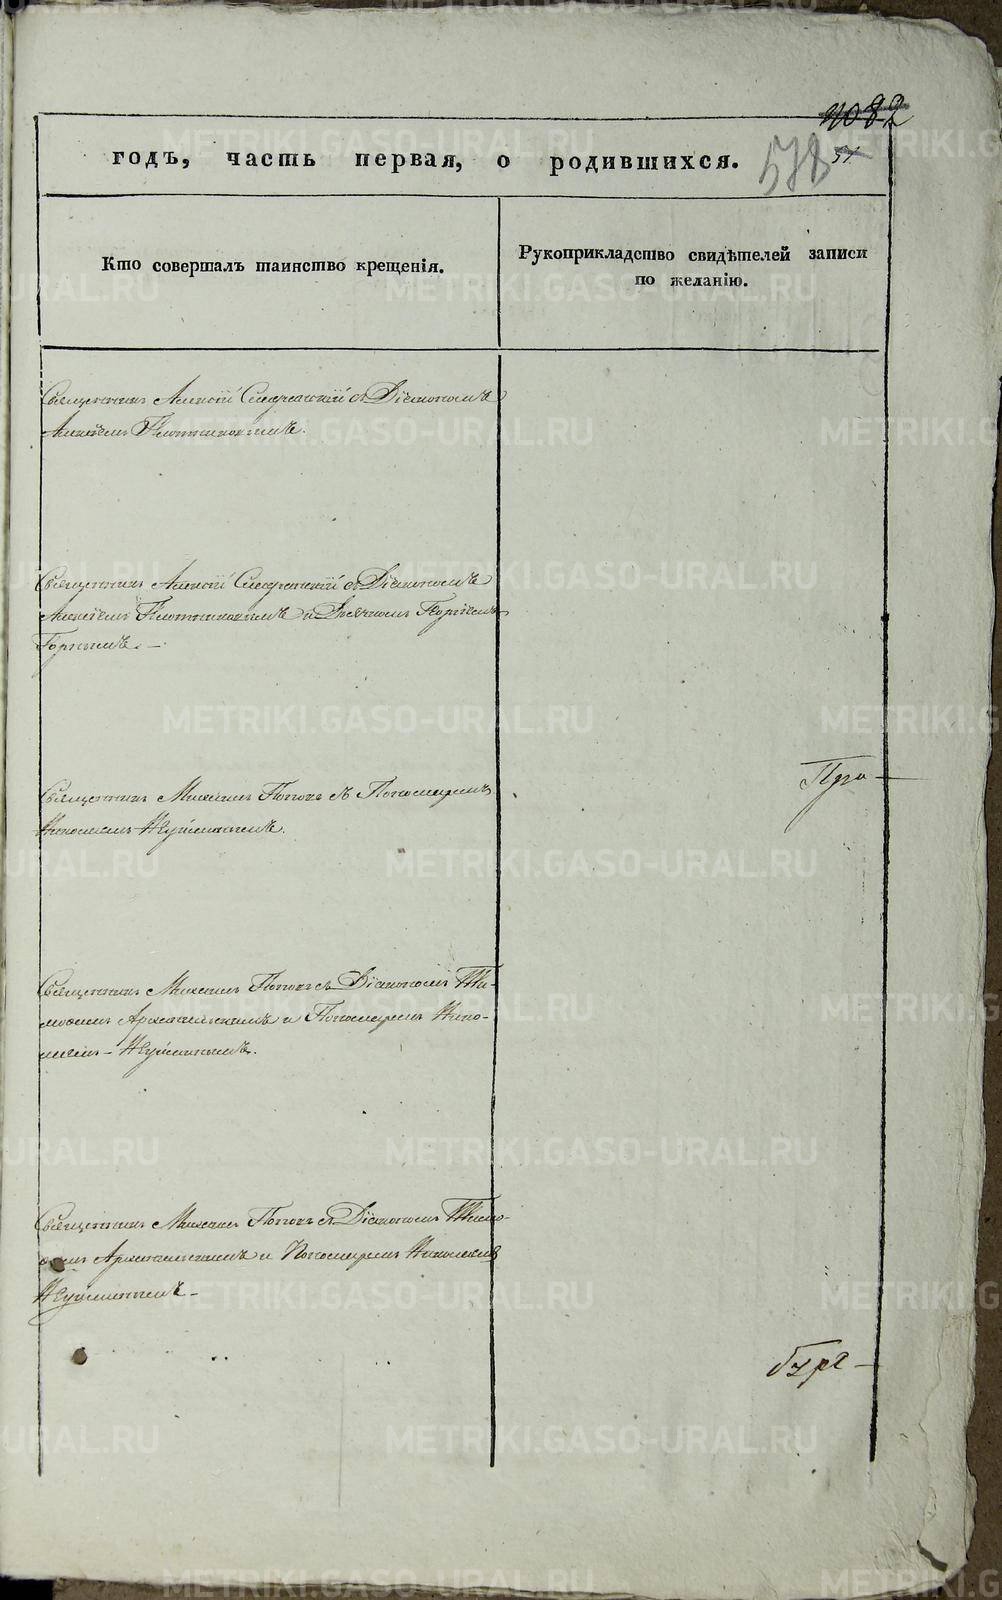 1082
годъ, часть первая, о родившихся.
578 51
Кто совершалъ таинство крещенія.
Рукоприкладство свидѣтелей записи
по желанію.
Священникъ Алексій Смеренскій съ Діакономъ
Алексѣемъ Плотниковымъ.
Священникъ Алексій Смеренскій съ Діакономъ
Алексѣемъ Плотниковымъ и Дьячкомъ Георгіемъ
Горнымъ. —
Священникъ Михаилъ Поповъ съ Пономаремъ
Николаемъ Неуйминымъ.
Священникъ Михаилъ Поповъ съ Діакономъ Ти-
моѳеемъ Архангельскимъ и Пономаремъ Нико-
лаемъ Неуйминымъ.
Священникъ Михаилъ Поповъ съ Діакономъ Тимо-
ѳеемъ Архангельскимъ и Пономаремъ Николаемъ
Неуйминымъ —
METRIKI.GASO-URAL.RU